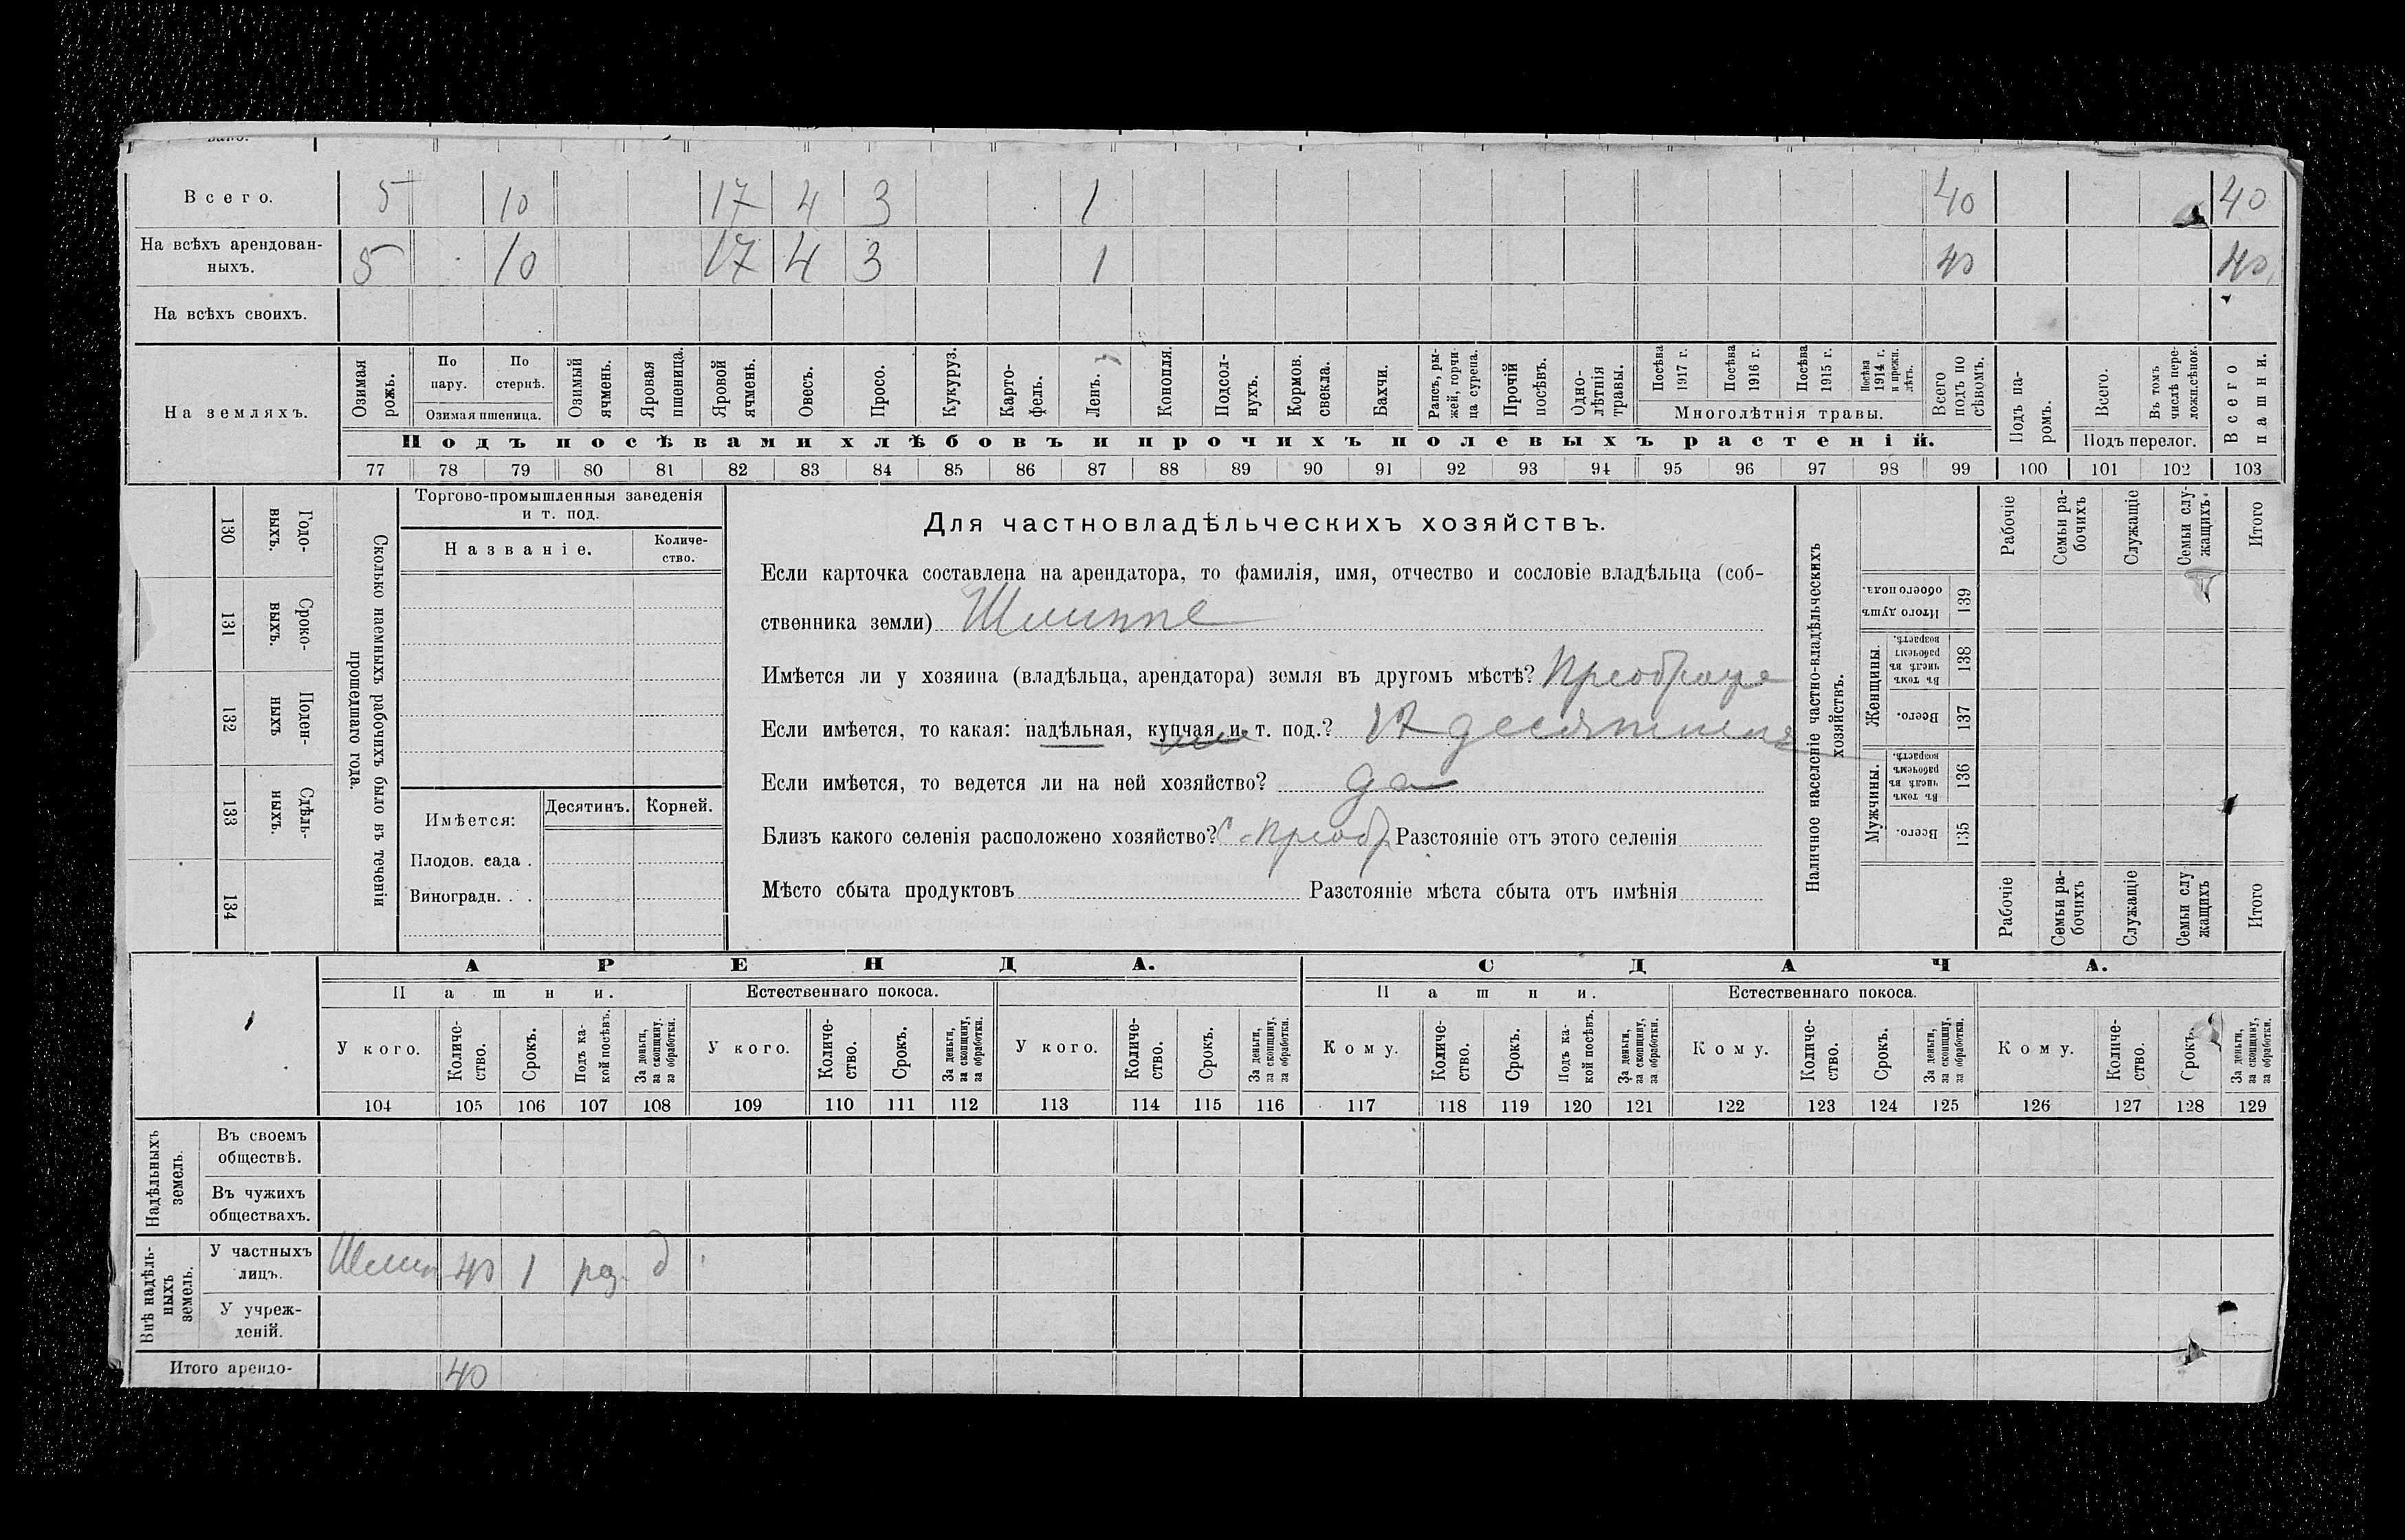 Всего. 5 10 17 4 3 1 40 40
На всѣхъ арендован-
ныхъ. 5 10 17 4 3 1 40 40
На всѣхъ своихъ.
На земляхъ.
Озимая рожь.
По пару.
По стернѣ.
Озимая пшеница.
Озимый ячмень.
Яровая пшеница.
Яровой ячмень.
Овесъ.
Просо.
Кукуруз.
Карто-
фель.
Ленъ.
Конопля.
Подсол-
нухъ.
Кормов.
свекла.
Бахчи.
Рапсъ, ры-
жей, горчи-
ца сурепа.
Прочій
посѣвъ.
Одно-
лѣтнія
травы.
Посѣва
1917 г.
Посѣва
1916 г.
Посѣва
1915 г.
Посѣва
1914 г.
и прежн.
лѣтъ.
Многолѣтнія травы.
Всего
подъ по
сѣвомъ.
Подъ па-
ромъ.
Всего.
Въ томъ
числѣ пере-
ложн.сѣнок.
Подъ перелог.
Всего
пашни.
Подъ посѣвами хлѣбовъ и прочихъ полевыхъ растеній.
77 78 79 80 81 82 83 84 85 86 87 88 89 90 91 92 93 94 95 96 97 98 99 100 101 102 103
130 Годо-
выхъ.
131 Сроко-
выхъ.
132 Поден-
ныхъ
133 Сдѣль-
ныхъ.
134
Сколько наемныхъ рабочихъ было въ теченіи
прошедшаго года.
Торгово-промышленныя заведенія
и т. под.
Названіе.
Количе-
ство.
Имѣется:
Десятинъ.
Корней.
Плодов. сада .
Виноградн. . .
Для частновладѣльческихъ хозяйствъ.
Если карточка составлена на арендатора, то фамилія, имя, отчество и сословіе владѣльца (соб-
ственника земли)
Имѣется ли у хозяина (владѣльца, арендатора) земля въ другомъ мѣстѣ?
Если имѣется, то какая: надѣльная, купчая и т. под.?
Если имѣется, то ведется ли на ней хозяйство? да
Близъ какого селенія расположено хозяйство? с. Преобр Разстояніе отъ этого селенія
Мѣсто сбыта продуктовъ Разстояніе мѣста сбыта отъ имѣнія
Наличное населеніе частно-владѣльческихъ
хозяйствъ.
Рабочіе
Семьи ра-
бочихъ
Служащіе
Семьи слу-
жащихъ
Итого
Итого душъ
обоего пола.
139
Женщины.
Въ томъ
числѣ въ
рабочемъ
возрастѣ.
138
Всего.
137
Мужчины.
Въ томъ
числѣ въ
рабочемъ
возрастѣ.
136
Всего.
135
Рабочіе
Семьи ра-
бочихъ
Служащіе
Семьи слу
жащихъ
Итого
АРЕНДА. СДАЧА.
Пашни. Естественнаго покоса. Пашни. Естественнаго покоса.
У кого.
Количе-
ство.
Срокъ.
Подъ ка-
кой посѣвъ.
За деньги,
за скопщину,
за обработки.
У кого.
Количе-
ство.
Срокъ.
За деньги,
за скопщину,
за обработки.
У кого.
Количе-
ство.
Срокъ.
За деньги,
за скопщину,
за обработки.
Кому.
Количе-
ство.
Срокъ.
Подъ ка-
кой посѣвъ.
За деньги,
за скопщину,
за обработки.
Кому.
Количе-
ство.
Срокъ.
За деньги,
за скопщину,
за обработки.
Кому.
Количе-
ство.
Срокъ.
За деньги,
за скопщину,
за обработки.
104 105 106 107 108 109 110 111 112 113 114 115 116 117 118 119 120 121 122 123 124 125 126 127 128 129
Надѣльныхъ
земель.
Въ своемъ
обществѣ.
Въ чужихъ
обществахъ.
Внѣ надѣль-
ныхъ
земель.
У частныхъ
лицъ. 40 1 раз. д
У учреж-
деній.
Итого арендо- 40